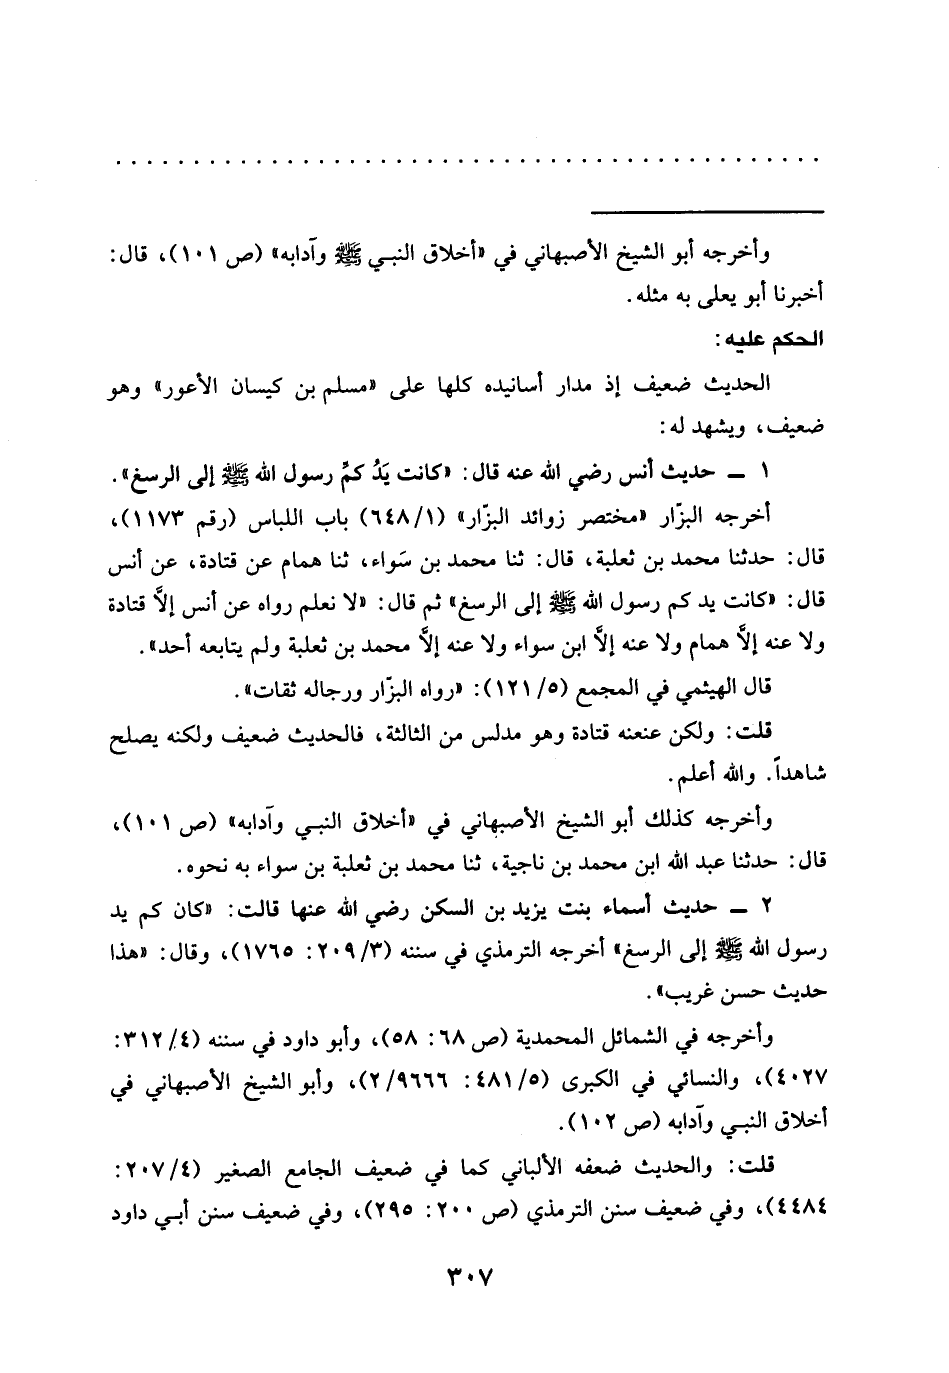 . . . . . . . . . . . . . . . . . . . . . . . . . . . . . . . . . . . . . . . . . . . . .
وأخرجه أبو الشيخ الأصبهاني في «أخلاق النبي ﷺ وآدابه» (ص ١٠١)، قال:
أخبرنا أبو يعلى به مثله.
الحكم عليه:
الحديث ضعيف إذ مدار أسانيده كلها على «مسلم بن كيسان الأعور» وهو
ضعيف، ويشهد له:
١ ـ حديث أنس رضي الله عنه قال: «كانت يَدُ كمِّ رسول الله ﷺ إلى الرسغ».
أخرجه البزّار «مختصر زوائد البزّار» (٦٤٨/١) باب اللباس (رقم ١١٧٣)،
قال: حدثنا محمد بن ثعلبة، قال: ثنا محمد بن سَواء، ثنا همام عن قتادة، عن أنس
قال: «كانت يد كم رسول الله ﷺ إلى الرسغ» ثم قال: «لا نعلم رواه عن أنس إلاَّ قتادة
ولا عنه إلاَّ همام ولا عنه إلاَّ ابن سواء ولا عنه إلاَّ محمد بن ثعلبة ولم يتابعه أحد».
قال الهيثمي في المجمع (١٢١/٥): «رواه البزّار ورجاله ثقات».
قلت: ولكن عنعنه قتادة وهو مدلس من الثالثة، فالحديث ضعيف ولكنه يصلح
شاهداً. والله أعلم.
وأخرجه كذلك أبو الشيخ الأصبهاني في «أخلاق النبي وآدابه» (ص ١٠١)،
قال: حدثنا عبد الله ابن محمد بن ناجية، ثنا محمد بن ثعلبة بن سواء به نحوه.
٢ ـ حديث أسماء بنت يزيد بن السكن رضي الله عنها قالت: «كان كم يد
رسول الله ﷺ إلى الرسغ» أخرجه الترمذي في سننه (٢٠٩/٣: ١٧٦٥)، وقال: «هذا
حديث حسن غريب».
وأخرجه في الشمائل المحمدية (ص ٦٨: ٥٨)، وأبو داود في سننه (٣١٢/٤:
٤٠٢٧)، والنسائي في الكبرى (٤٨١/٥: ٢/٩٦٦٦)، وأبو الشيخ الأصبهاني في
أخلاق النبي وآدابه (ص ١٠٢).
قلت: والحديث ضعفه الألباني كما في ضعيف الجامع الصغير (٢٠٧/٤:
٤٤٨٤)، وفي ضعيف سنن الترمذي (ص ٢٠٠: ٢٩٥)، وفي ضعيف سنن أبي داود
٣٠٧